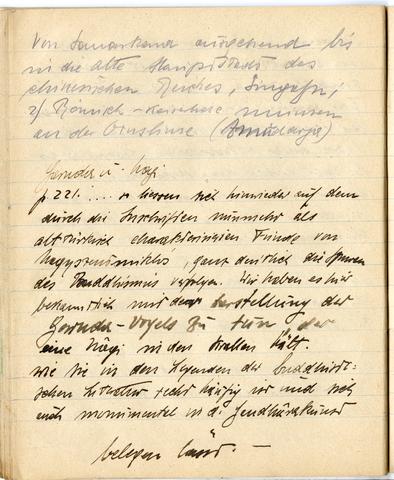 Von Samarkand ausgehend bis
in die alte Hauptstadt des
chinesischen Reiches, Singafu;
2) Römisch-
an der Oxuslinie (Amudarja)
Garuda u. Nagi
p. 221. .... so liessen sich hinwieder auf dem
durch die Inschriften nunmehr als
alttürkisch charakterisierten Funde von
Nagyszentmiklós, ganz deutlich die Spuren
des Buddhismus verfolgen. Wir haben es hier
bekanntlich mit der Darstellung des
Garuda-Vogels zu tun der
eine Nagi in den Krallen hält.
wie sie in den Legenden der buddhisti-
schen Literatur recht häufig vor und sich
auch monumental in d. Gandhārakunst
belegen lässt. —